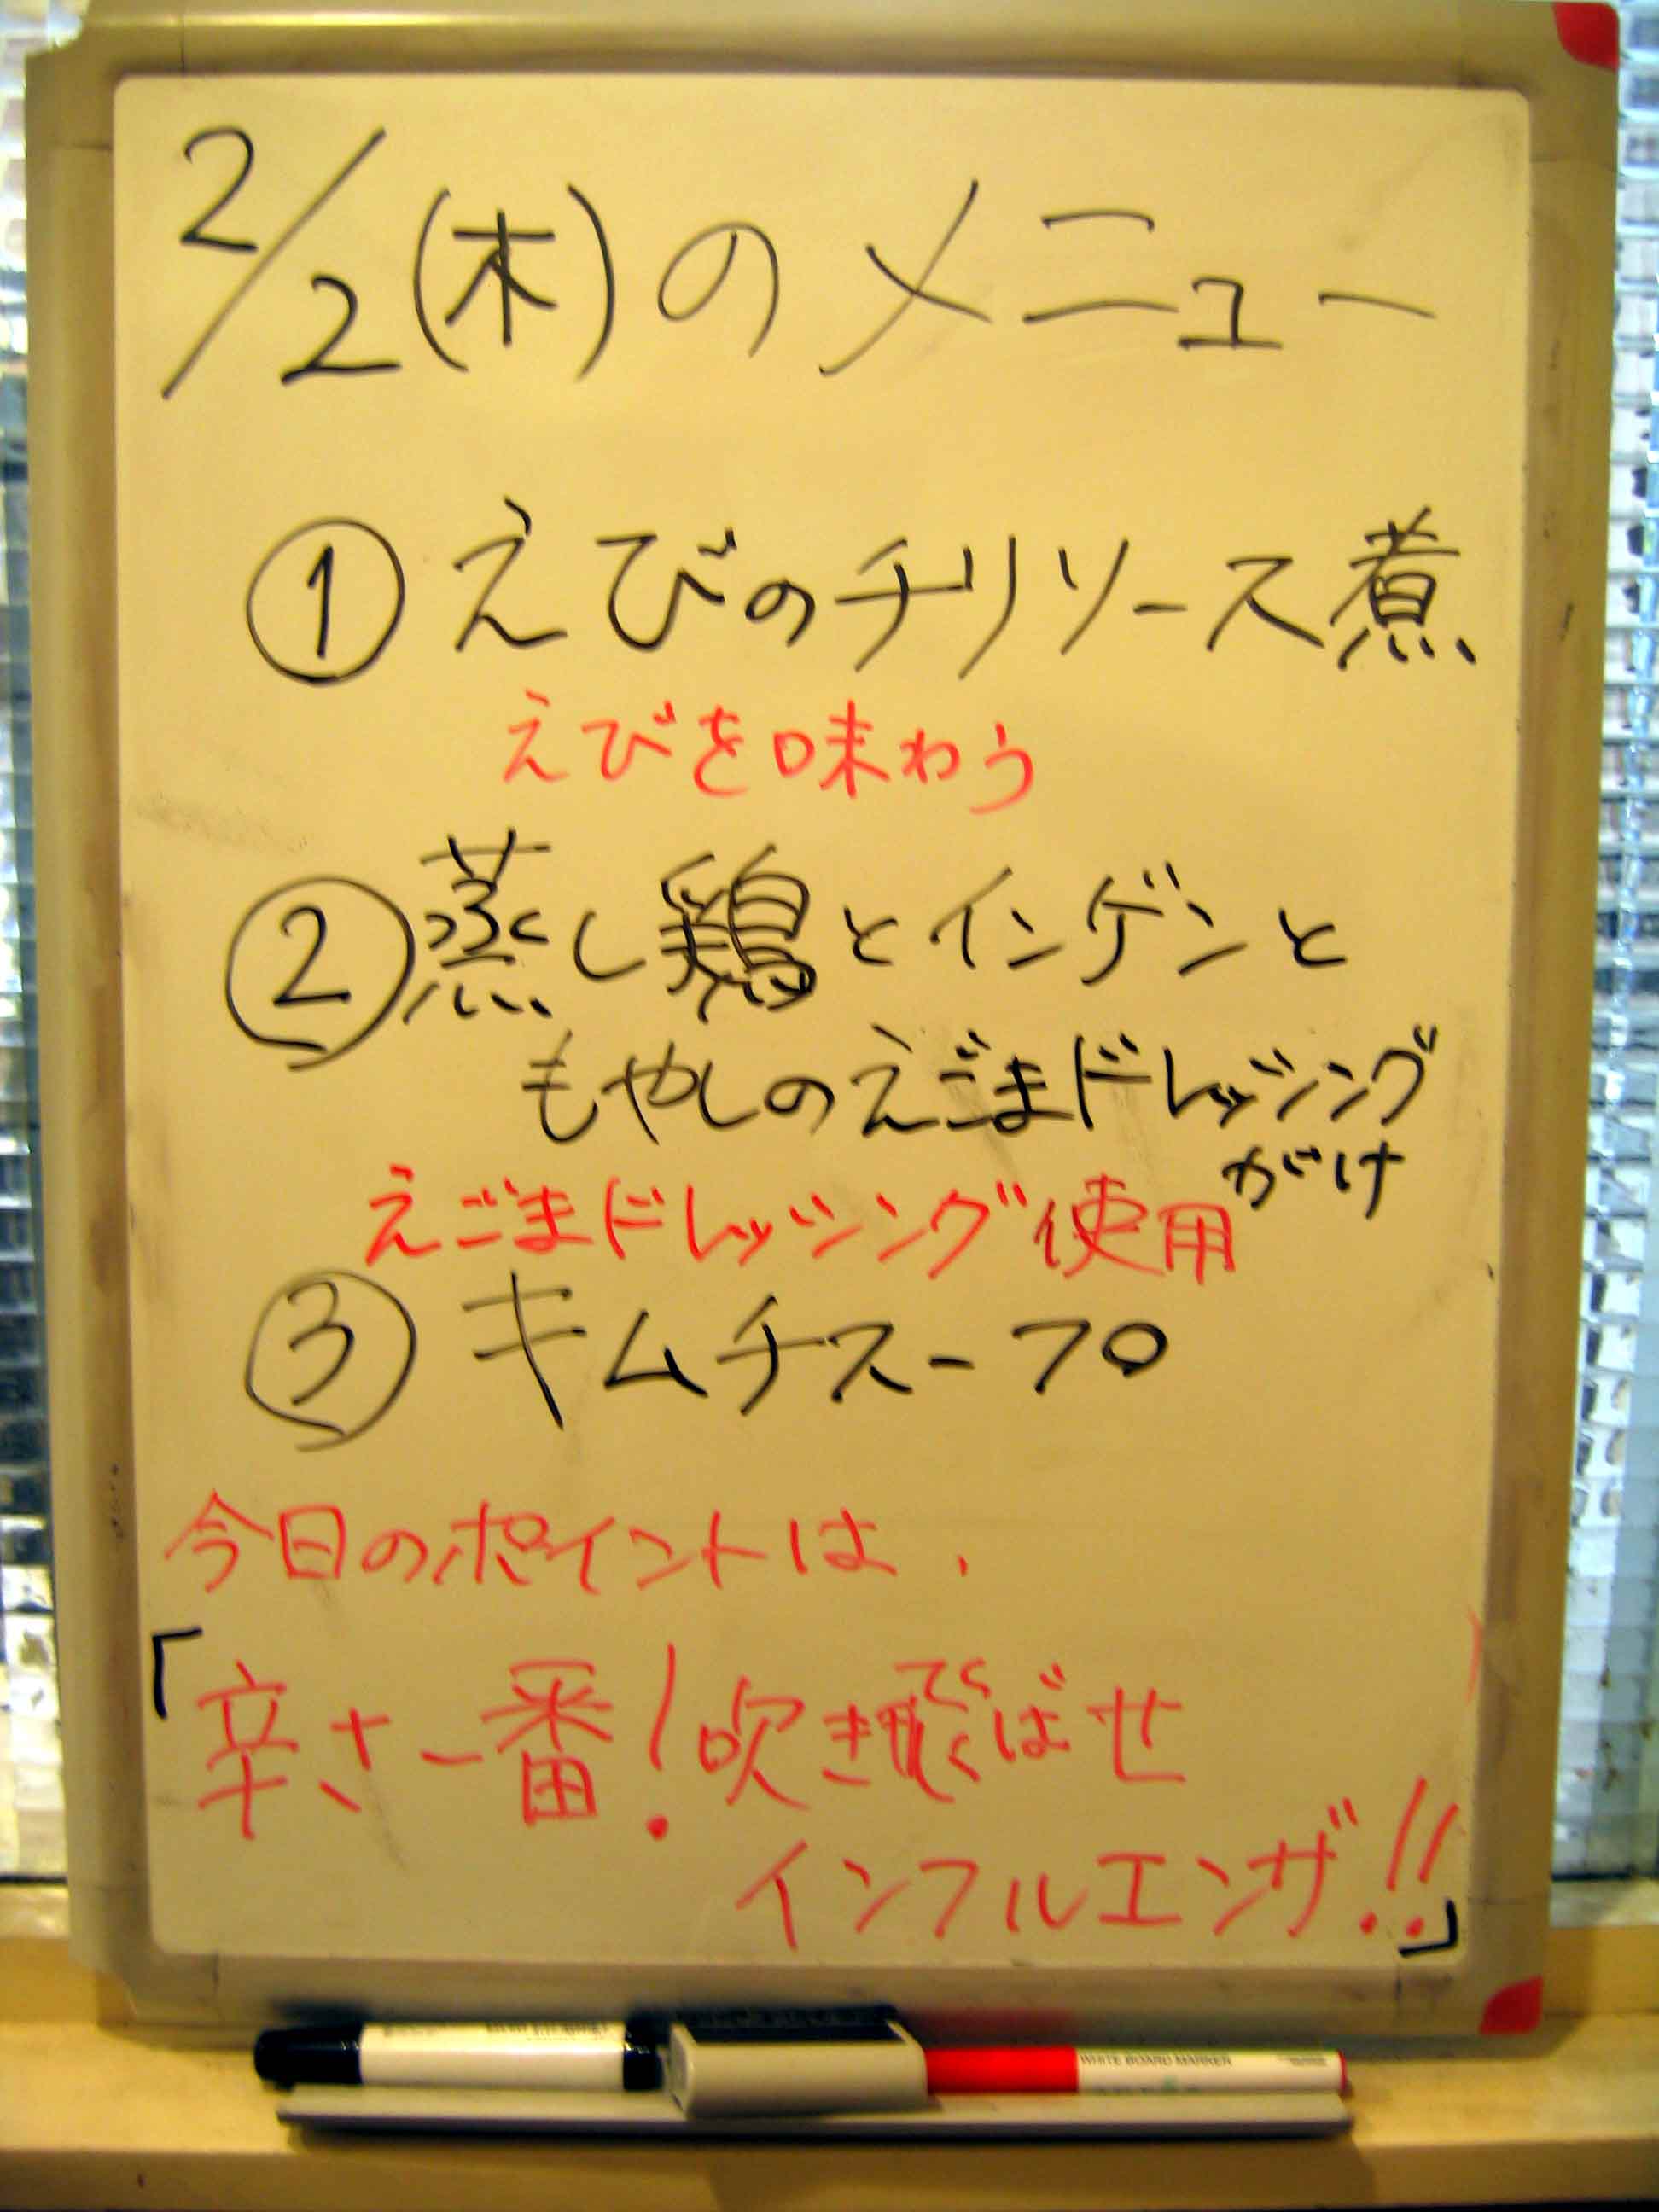 2/2(木)のメニュー
①えびのチリソース煮
えびを味わう
②蒸し鶏とインゲンと
もやしのえごまドレッシング
がけ
えごまドレッシング使用
③キムチスープ
今日のポイントは、
「辛さ一番!吹き飛ばせ
インフルエンザ!!」
WHITE BOARD MARKER